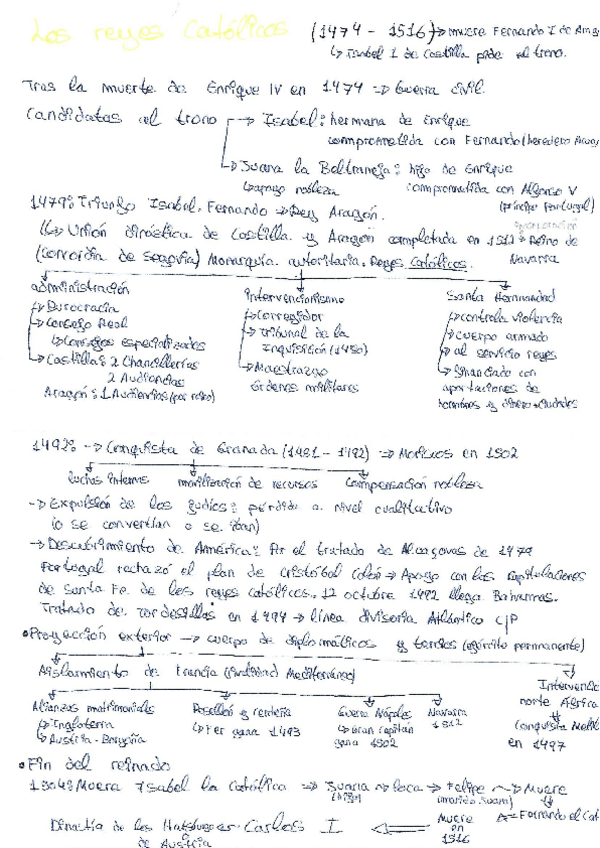 Los reyes Católicos (1474 - 1516) → muere Fernando I de Arag
↳ Isabel I de Castilla pide el trono.
Tras la muerte de Enrique IV en 1474 → Guerra civil
Candidatas al trono → Isabel: hermana de Enrique
comprometida con Fernando (heredero
↳ Juana la Beltraneja: hija de Enrique
↳ apoyo nobleza comprometida con Alfonso V
(príncipe Portugal)
1479: Triunfo Isabel, Fernando → Rey Aragón.
↳ Unión dinástica de Castilla y Aragón completada en 1512 → Reino de
Navarra
(Concordia de Segovia) Monarquía autoritaria. Reyes Católicos.
administración Intervencionismo Santa Hermandad
↳ Burocracia ↳ Corregidor ↳ controla violencia
↳ Consejo Real ↳ Tribunal de la ↳ cuerpo armado
↳ Consejos especializados Inquisición (1480) ↳ al servicio reyes
↳ Castilla: 2 Chancillerías ↳ Maestrazgo ↳ financiado con
2 Audiencias Órdenes militares aportaciones de
Aragón: 1 Audiencias (por reino) hombres y dinero ciudades
1492: → Conquista de Granada (1481 - 1492) → Moriscos en 1502
luchas internas movilización de recursos compensación nobleza
→ Expulsión de los judíos: pérdida a nivel cualitativo
(o se convertían o se iban)
→ Descubrimiento de América: Por el tratado de Alcaçovas de 1479
Portugal rechazó el plan de Cristóbal Colón → Apoyo con las capitulaciones
de Santa Fe de los reyes católicos. 12 octubre 1492 llega Bahamas.
Tratado de Tordesillas en 1494 → línea divisoria Atlántico C/P
• Proyección exterior → cuerpo de diplomáticos y tercios (ejército permanente)
Aislamiento de Francia (rivalidad Mediterráneo) Intervención
norte África
Alianzas matrimoniales Rosellón y Cerdeña Guerra Nápoles Navarra
↳ Inglaterra ↳ Fer gana 1493 ↳ Gran capitán 1512 Conquista Melil
↳ Austria - Borgoña gana 1502 en 1497
• Fin del reinado
1504: Muera Isabel la Católica → Juana → loca → Felipe → Muere
(hija) (marido Juana)
Fernando el Cat
Dinastía de los Habsburgo. Carlos I ⇐ Muere
de Austria en
1516